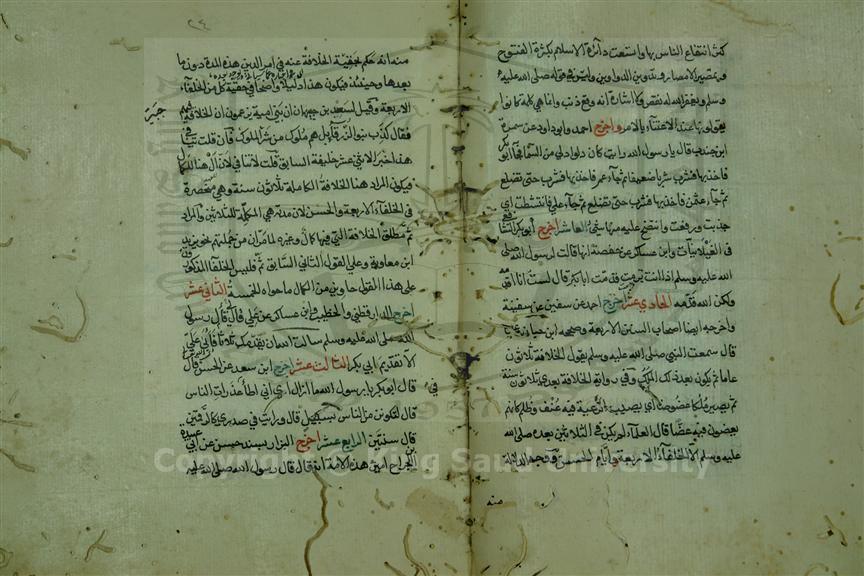 كثر انتفاع الناس بها واتسعت دائرة الاسلام بكثرة الفتوح
وتمصير الامصار وتدوين الدواوين وليس في قوله صلى الله عليه
وسلم ويغفر الله له نقص ولا اشارة انه وقع ذنب وانما هي كلمة كانوا
يقولونها عند الاعتناء بالامر واخرج احمد وابو داود عن سمرة
ابن جندب قال يا رسول الله رايت كان دلوا دلي من السما فجا ابو بكر
فاخذ بها فشرب شربا ضعيفا ثم جاء عمر فاخذ بها فشرب حتى تضلع
ثم جاء عثمن فاخذ بها فشرب حتى تضلع ثم جاء علي فانتشطت اي
جذبت ورفعت وانتضح عليه منها شئ العاشر اخرج ابو بكر الشافعي
في الغيلانيات وابن عساكر عن حفصة انها قالت لرسول الله صلى
الله عليه وسلم اذا انت مرضت قدمت ابا بكر قال لست انا اقدمه
ولكن الله قدمه الحادي عشر اخرج احمد عن سفينة
واخرجه ايضا اصحاب السنن الاربعة وصححه ابن حبان وغيره
قال سمعت النبي صلى الله عليه وسلم يقول الخلافة ثلاثون
عاما ثم يكون بعد ذلك الملك وفي رواية الخلافة بعدي ثلاثون سنة
ثم تصير ملكا عضوضا اي يصيب الرعية فيه عنف وظلم كانهم
يعضون فيه عضا قال العلماء لم يكن في الثلاثين بعده صلى الله
عليه وسلم الا الخلفاء الاربعة وايام الحسن ووجه الدلالة
منه
٢٤
منه انه حكم بحقية الخلافة عنه في امر الدين هذه المدة دون ما
بعدها وحينئذ فيكون هذا دليلا واضحا في حقية كل من الخلفاء
الاربعة وقيل لسعيد بن جمهان ان بني امية يزعمون ان الخلافة فيهم
فقال كذب بنو الزرقا بل هم ملوك من شر الملوك فان قلت ينافي
هذا خبر الاثني عشر خليفة السابق قلت لا تنافي لان ال هنا للكمال
فيكون المراد هنا الخلافة الكاملة ثلاثون سنة وهي منحصرة
في الخلفاء الاربعة والحسن لان مدته هي المكملة للثلاثين والمراد
ثم مطلق الخلافة التي فيها كمال وغيره لما مر ان من جملتهم نحو يزيد
ابن معاوية وعلى القول الثاني السابق ثم فليس الخلفا المذكورون
على هذا القول حاوين من الكمال ما حواه الخمسة الثاني عشر
اخرج الدارقطني والخطيب وابن عساكر عن علي قال قال رسول
الله صلى الله عليه وسلم سالت الله ان يقدمك ثلاثا فابى علي
الا تقديم ابي بكر الثالث عشر اخرج ابن سعد عن الحسن قال
قال ابو بكر يا رسول الله ما ازال اراني اطأ عذرات الناس
قال لتكونن من الناس بسبيل قال ورايت في صدري كالرقمتين
قال سنتين الرابع عشر اخرج البزار بسند حسن عن ابي عبيدة
بن الجراح امين هذه الامة انه قال قال رسول الله صلى الله عليه
Copyright © King Saud University